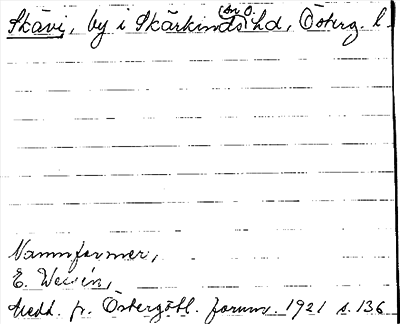 Skävi, by i Skärkinds hd, Österg. l.
(sn o.
Namnformer,
E. Wessén,
Medd. fr. Östergötl. fornm. 1921 s. 136